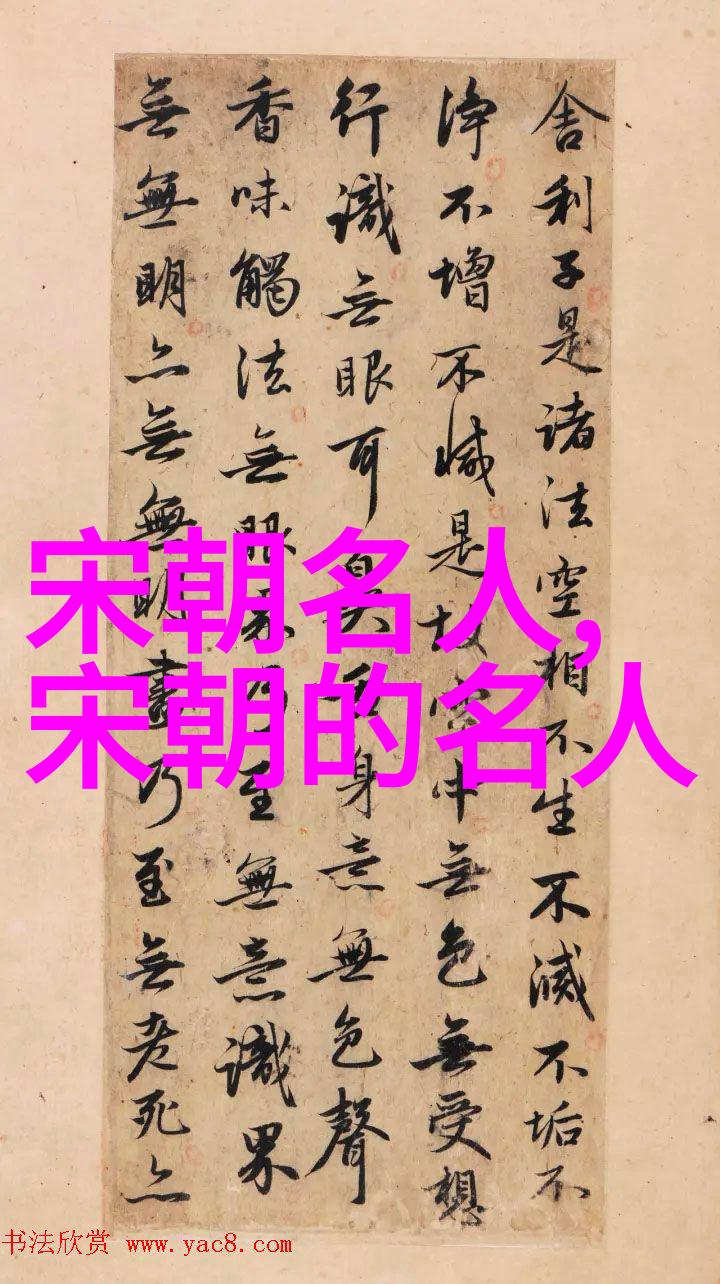 舍利子是諸法空相不生不滅不垢不
淨不增不減是故空中無色無受想
行識無眼耳鼻舌身意無色聲
香味觸法無眼界乃至無意識界
無無明亦無無明盡乃至無老死亦
宋朝名人,
宋朝的名人
书法欣赏 www.yac8.com